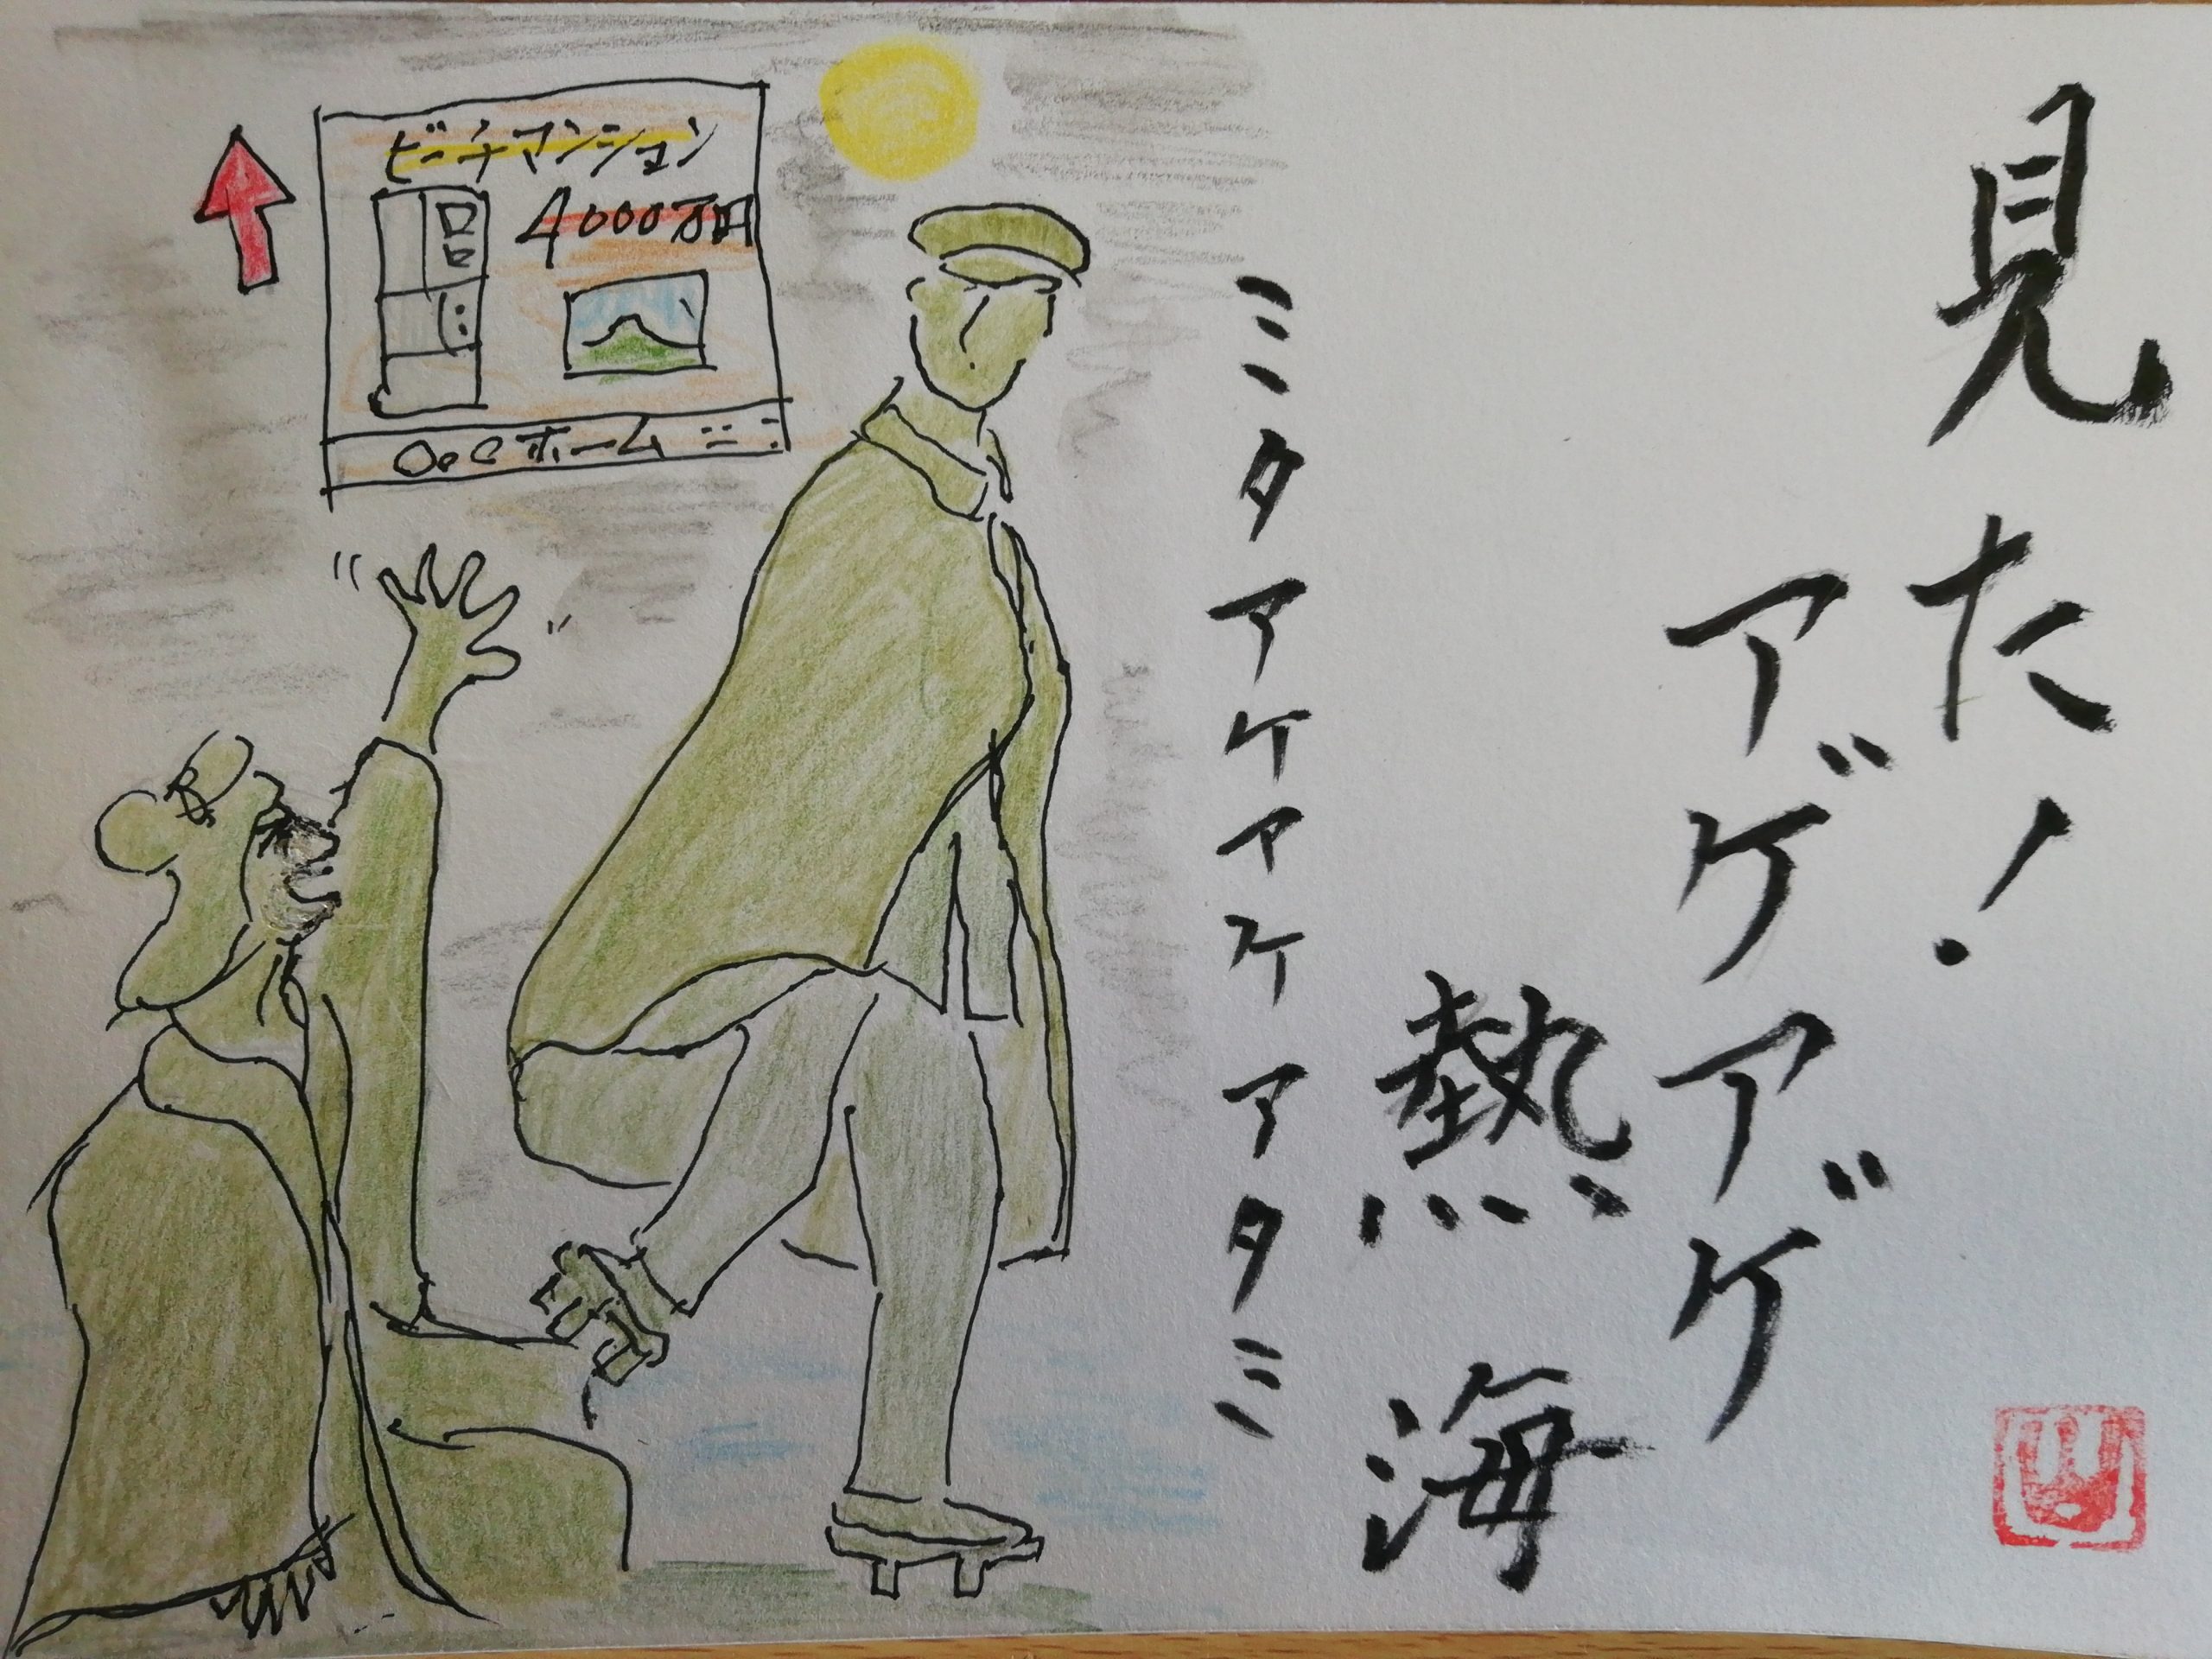 見た!
アゲアゲ
熱海
ミタアケアケアタミ
ビーチマンション
4000万円
ホーム